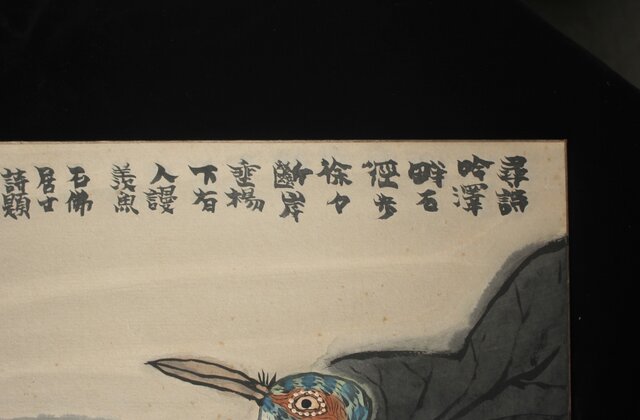 尋詩
吟澤
畔石
徑步
徐々
斷岸
垂楊
下有
人謾
羨魚
石佛
居士
詩題